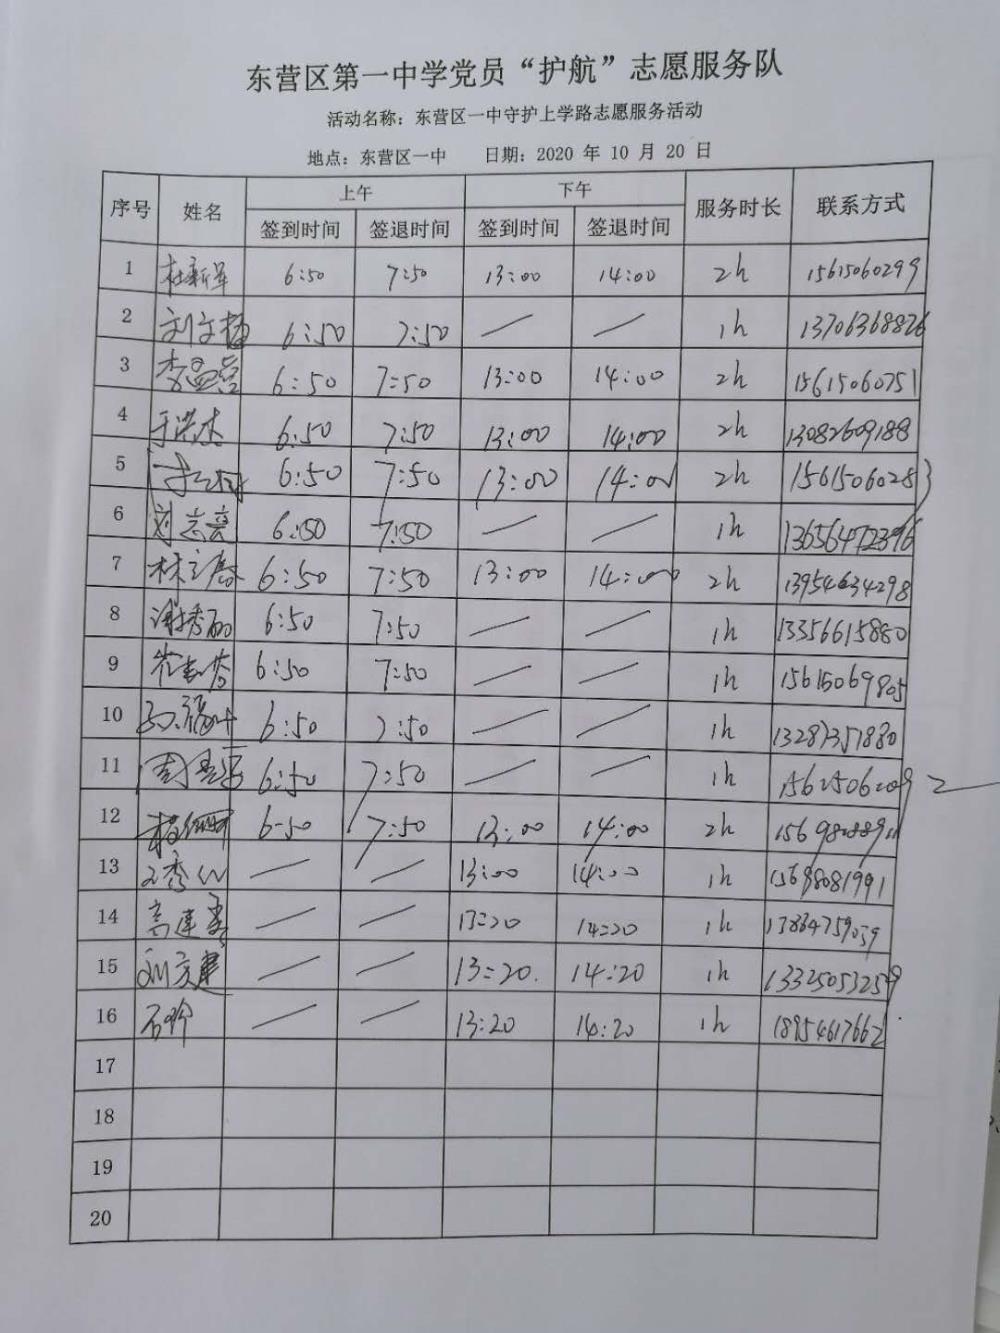 东营区第一中学党员“护航”志愿服务队
活动名称：东营区一中守护上学路志愿服务活动
地点：东营区一中 日期：2020 年 10 月 20 日
序号 姓名 上午 下午 服务时长 联系方式
签到时间 签退时间 签到时间 签退时间
1 杜新军 6:50 7:50 13:00 14:00 2h 15615060299
2 刘文梅 6:50 7:50 — — 1h 13706368826
3 李孟营 6:50 7:50 13:00 14:00 2h 15615060751
4 于洪杰 6:50 7:50 13:00 14:00 2h 13082609188
5 6:50 7:50 13:00 14:00 2h 15615060283
6 刘志亮 6:50 7:50 — — 1h
7 林 6:50 7:50 13:00 14:00 2h 13954634298
8 谢秀丽 6:50 7:50 — — 1h 13356615880
9 6:50 7:50 — — 1h 15615069805
10 6:50 7:50 — — 1h 13287351880
11 周 6:50 7:50 — — 1h
12 6-50 7:50 13:00 14:00 2h
13 王秀 — — 13:00 14:00 1h 15698081991
14 高建 — — 13=20 14=20 1h 13864759059
15 刘文建 — — 13=20. 14:20 1h 13325053259
16 石 — — 13:20 14:20 1h 18954617662
17
18
19
20